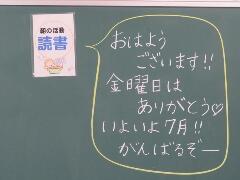 朝の活動
読書
おはよう
ございます!!
金曜日は
ありがとう♡
いよいよ7月!!
がんばるぞー